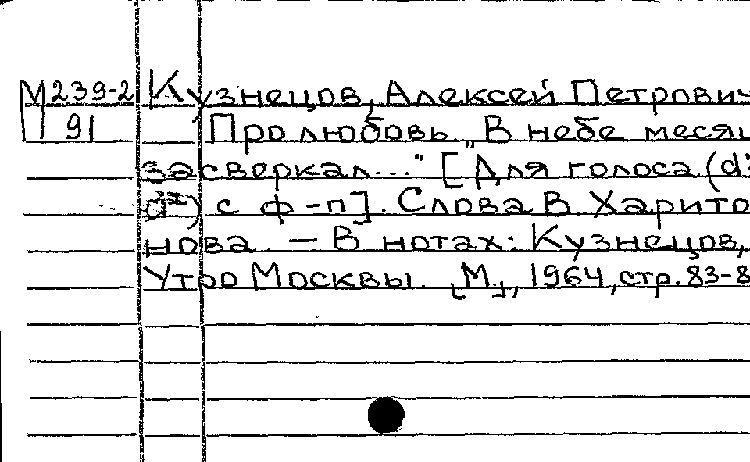 М239-2 Кузнецов, Алексей Петрович
91 Про любовь „В небе месяц
засверкал..." [Для голоса (d¹
d²) с ф-п]. Слова В Харито
нова. — В нотах: Кузнецов,
Утро Москвы. [М.], 1964, стр. 83-8